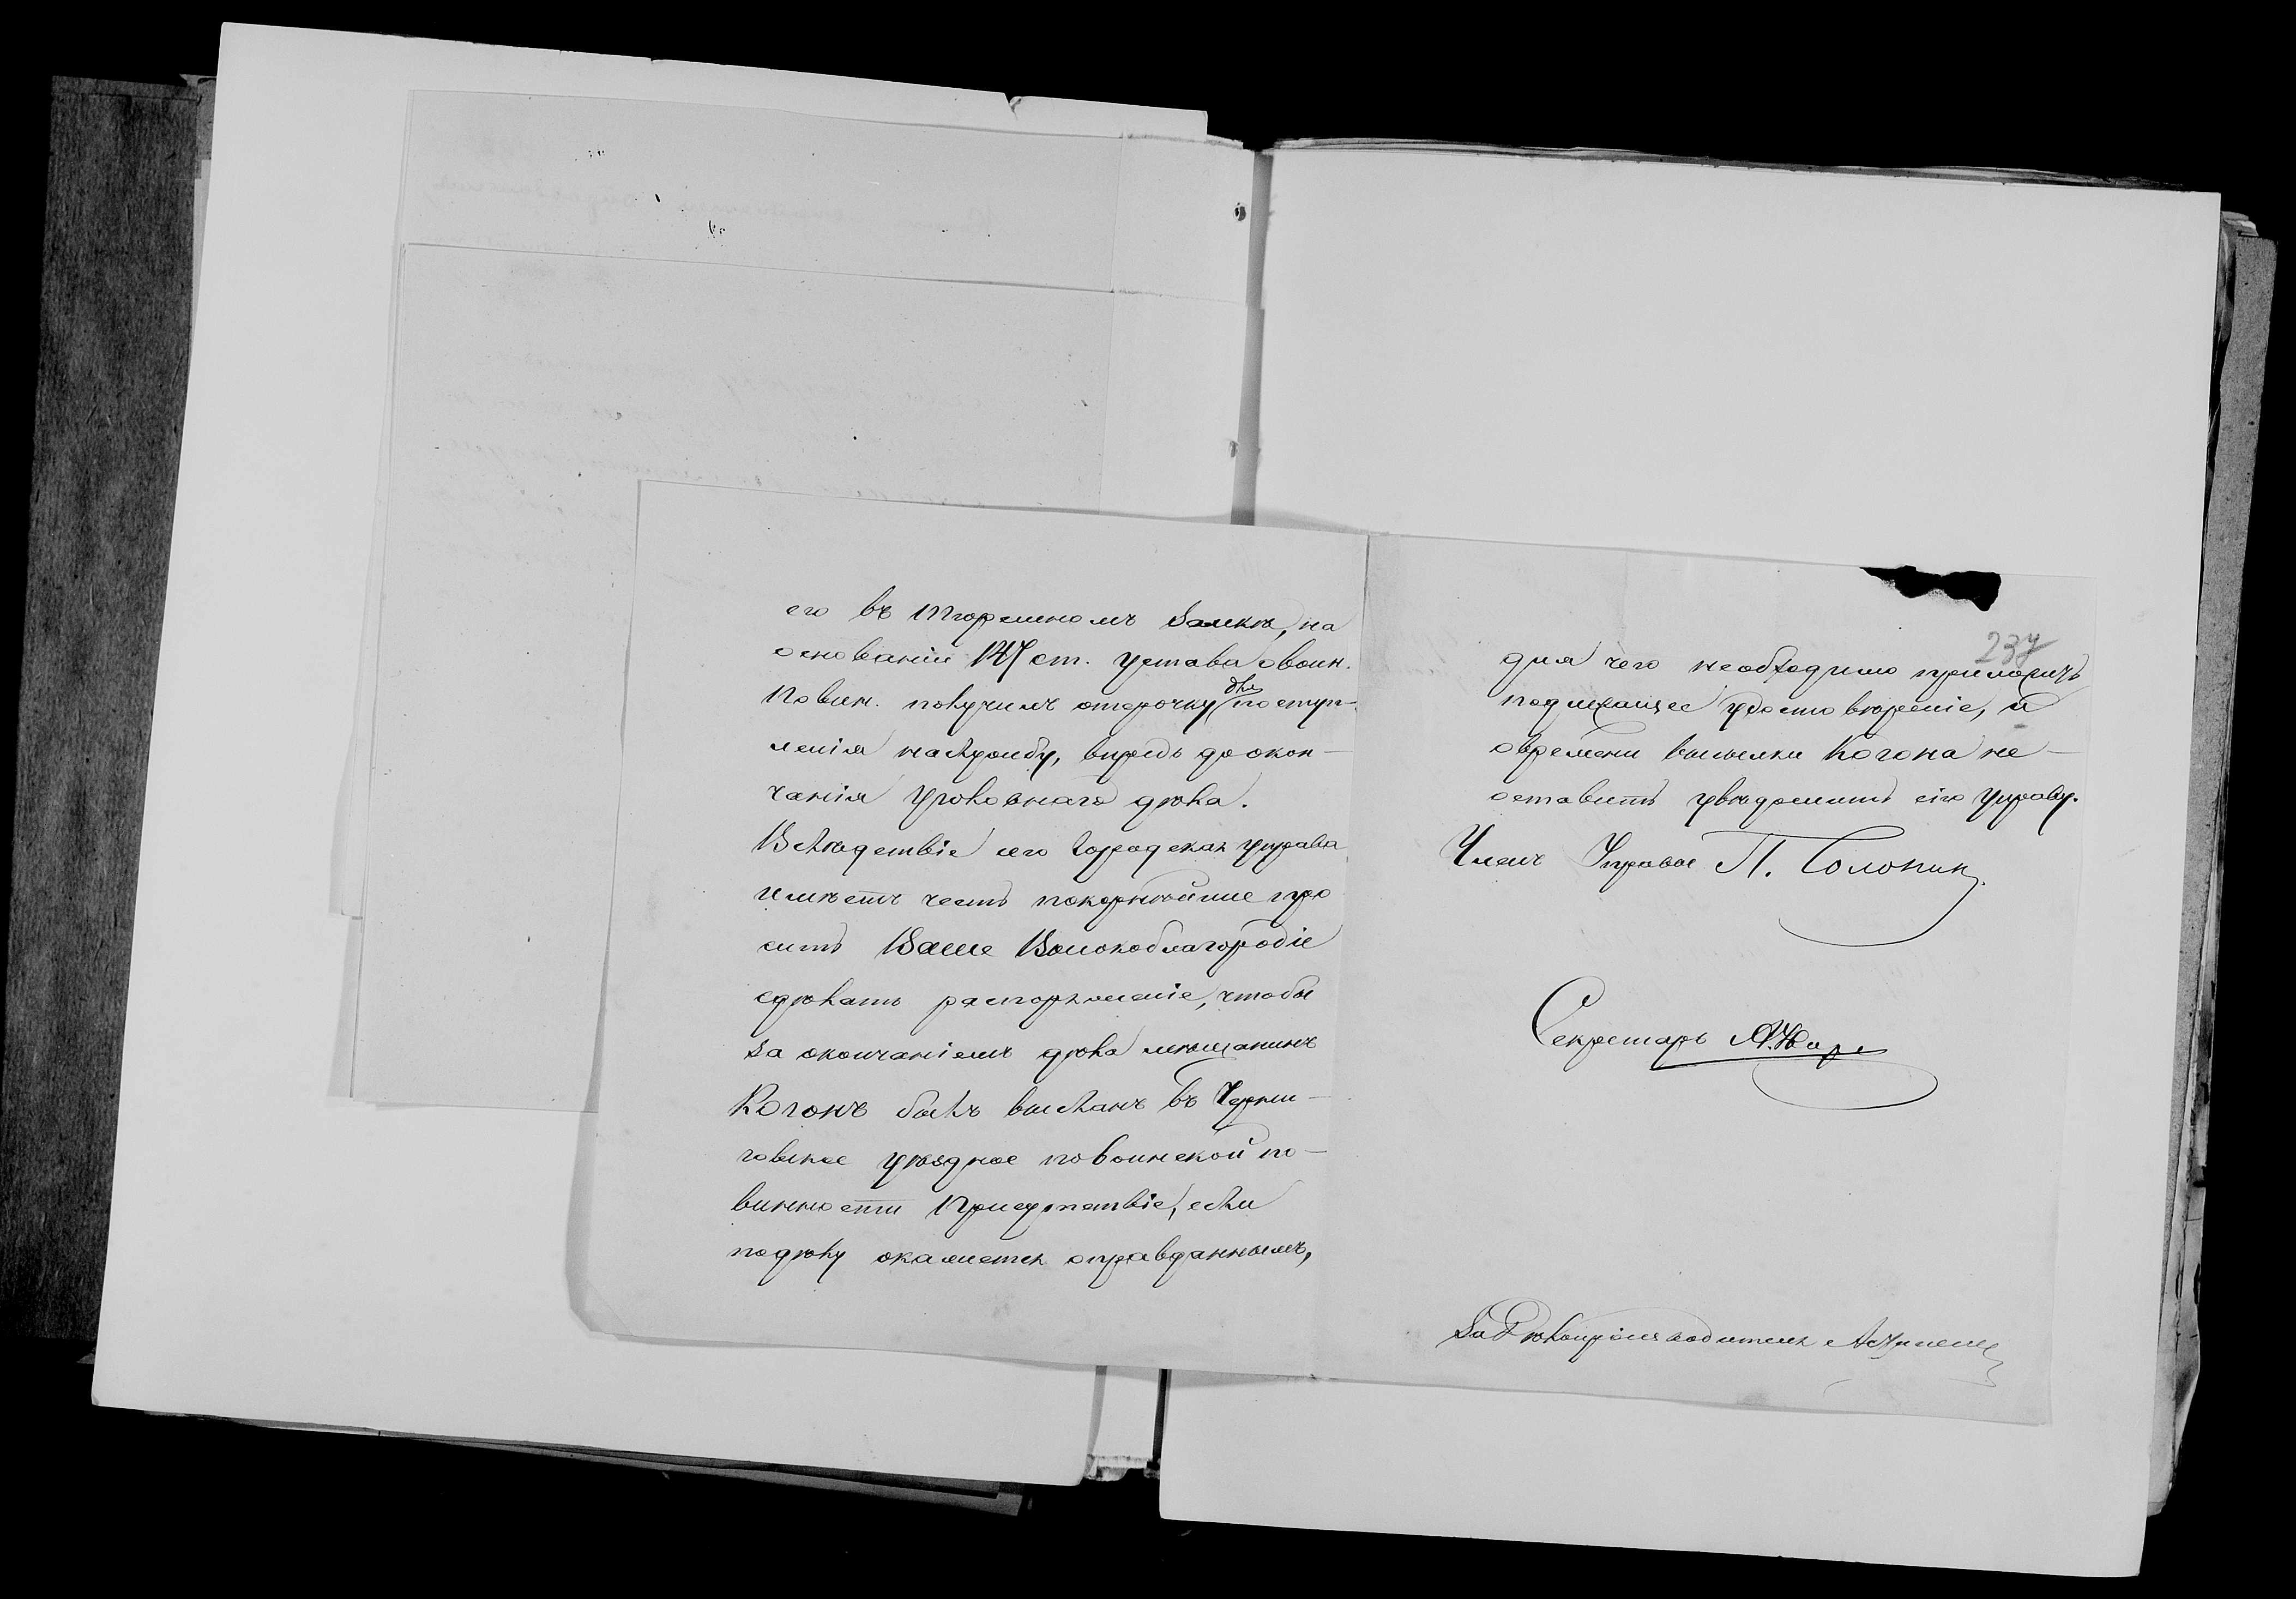 его въ тюремномъ замкѣ, на
основаніи 147 ст. устава о воин.
повин. получилъ отсрочку для поступ-
ленія на службу, впредь до окон-
чанія уголовнаго дѣла.
Вслѣдствіе сего Городская управа
имѣетъ честь покорнѣйше про
сить Ваше Высокоблагородіе
сдѣлать распоряженіе, чтобы
за окончаніемъ дѣла мѣщанинъ
Когонъ былъ высланъ въ Черни-
говское уѣздное по воинской по-
винности Присутствіе, если
по дѣлу окажется оправданнымъ,
237
для чего необходимо приложить
подлежащее удостовѣреніе, и
о времени высылки Когона не-
оставить увѣдомить сію управу.
Членъ Управы П. Солонин
Секретарь
За Дѣлопроизводителя